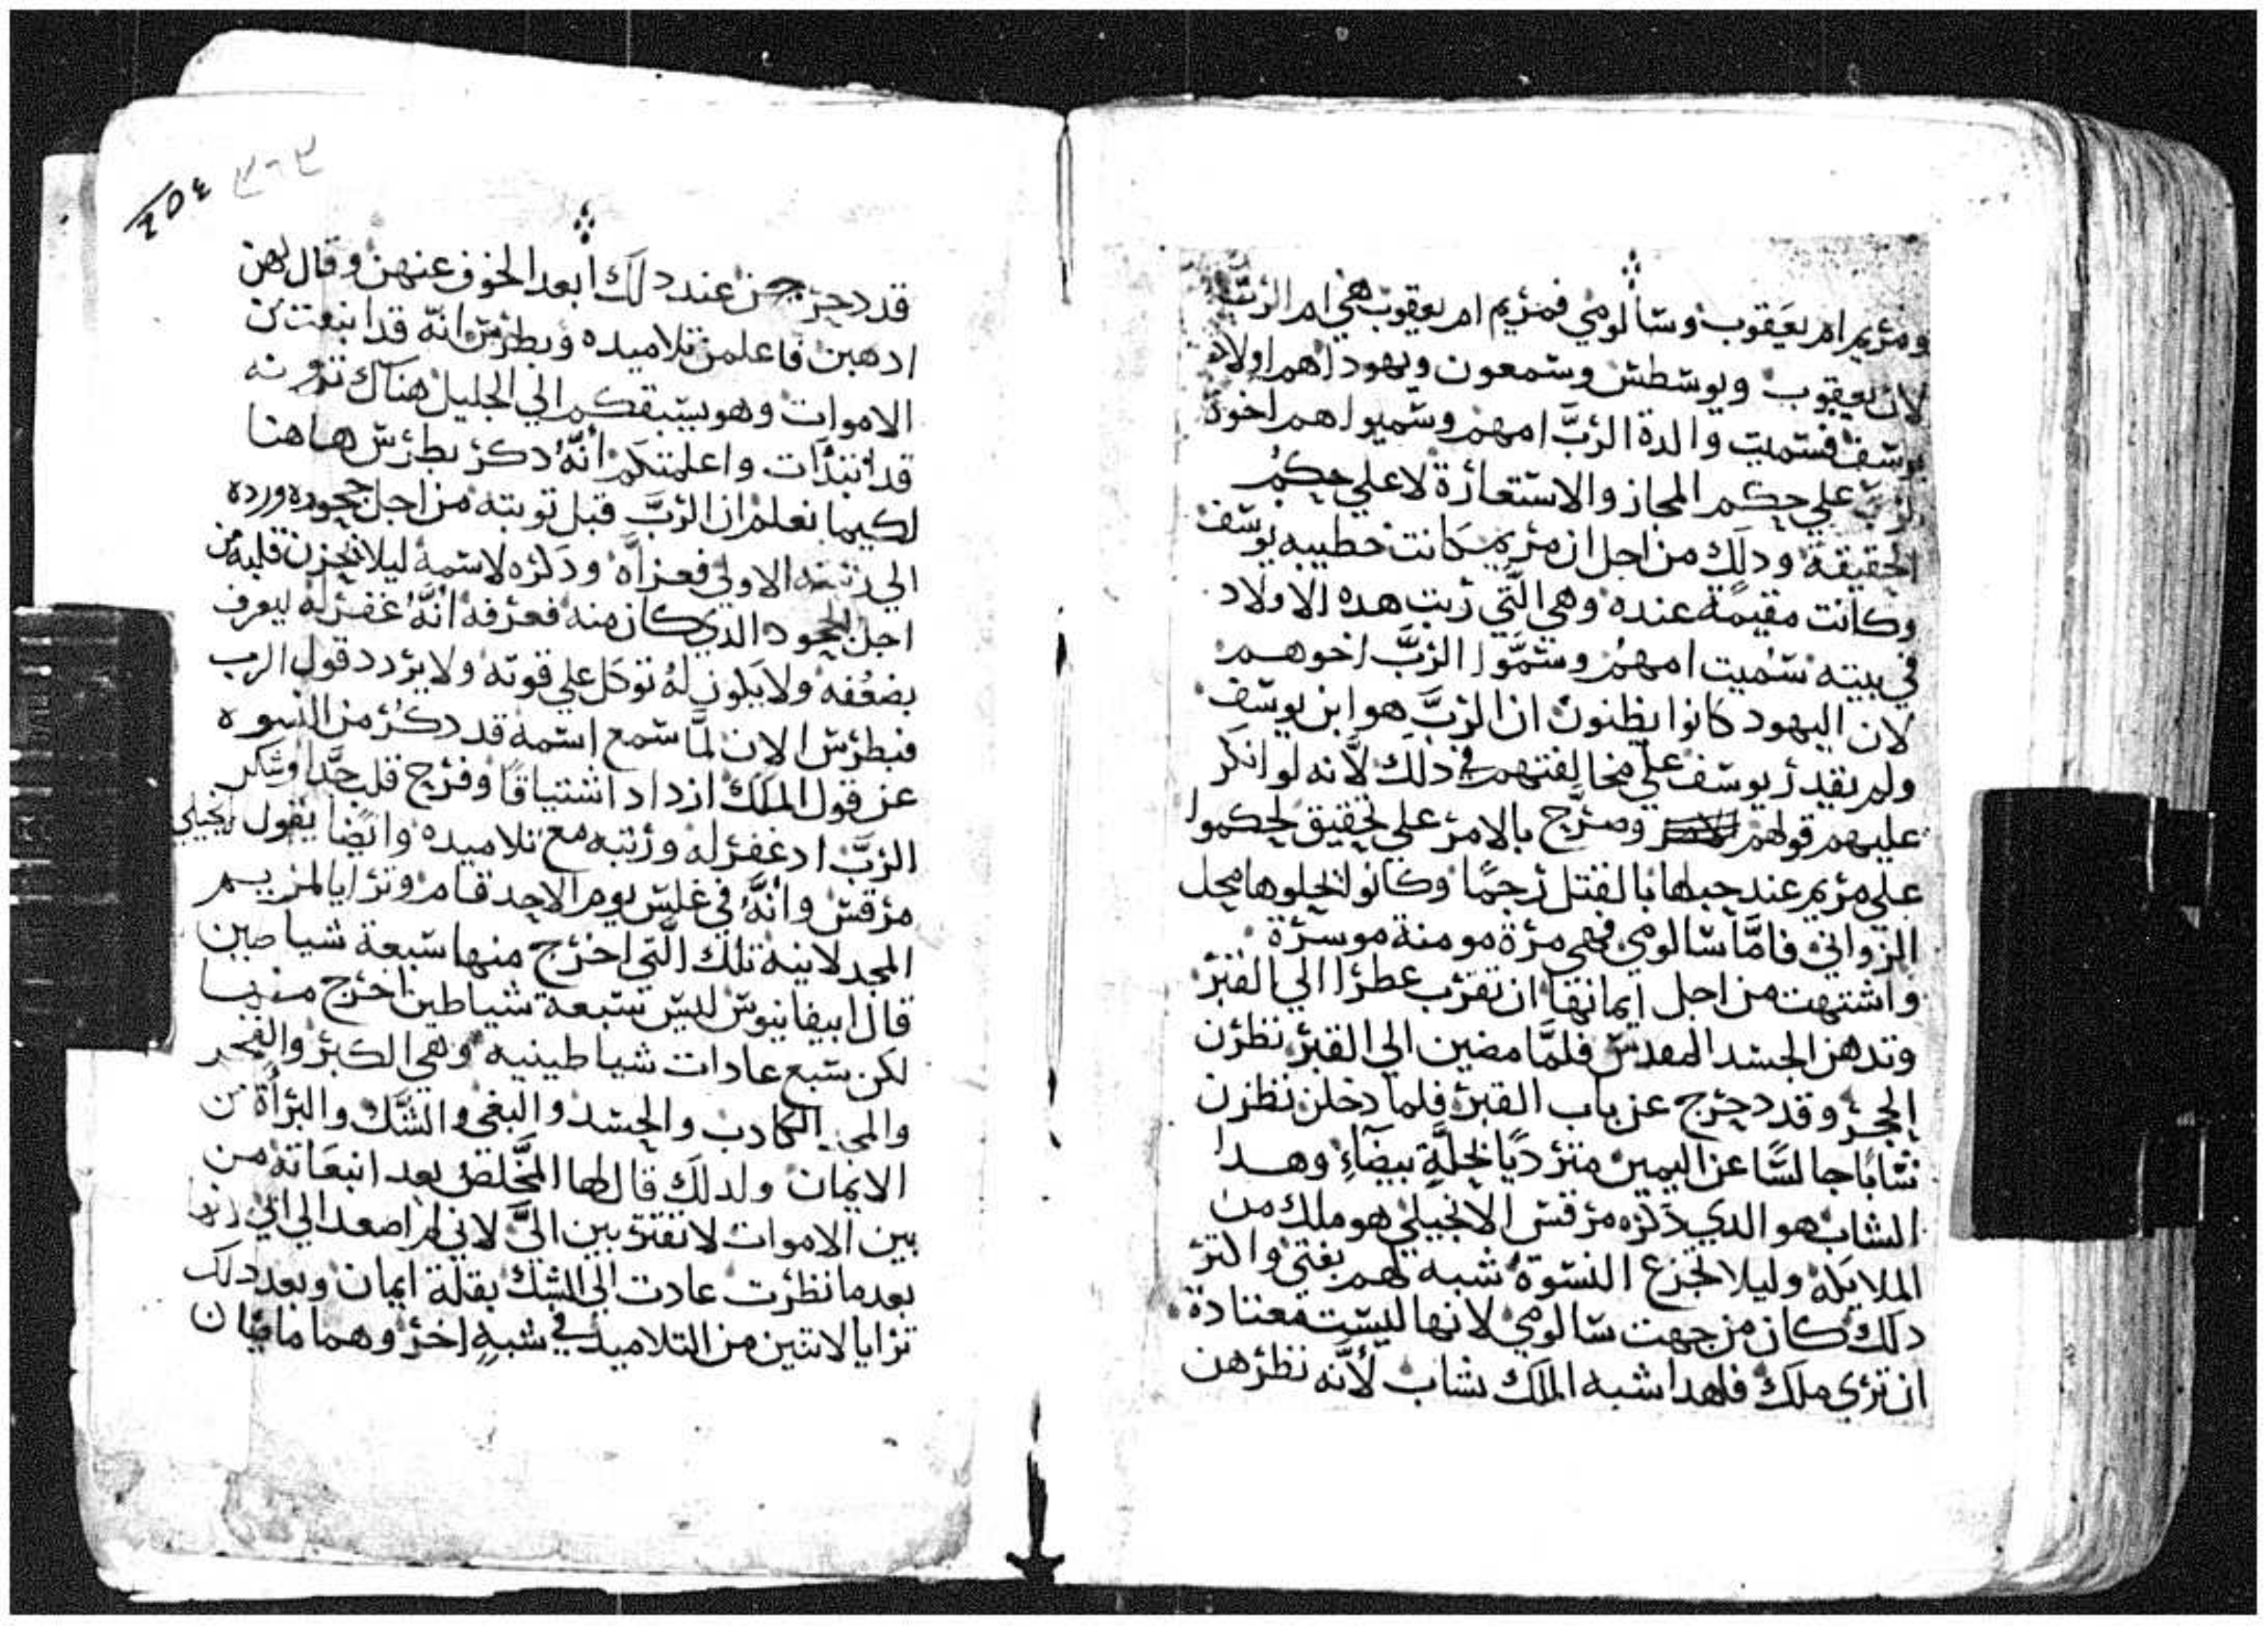 ومريم ام يعقوب وسالومي فمريم ام يعقوب هي ام الرب
لان يعقوب ويوسطس وسمعون ويهودا هم اولاد
يوسف فسميت والدة الرب امهم وسميوا هم اخوة
الرب علي حكم المجاز والاستعارة لا علي حكم
الحقيقة ودلك من اجل ان مريم كانت خطيبه يوسف
وكانت مقيمة عنده وهي الَّتي ربت هده الاولاد
في بيته سُميت امهم وسَمَّوا الربَّ اخوهم
لان اليهود كانوا يظنون ان الربَّ هو ابن يوسف
ولم يقدر يوسف علي مخالفتهم في ذلك لأنه لو انكر
عليهم قولهم وصرَّح بالامر علي تحقيق لحكموا
علي مريم عند حبلها بالقتل رجمًا وكانوا يخلوها محل
الزواني فامَّا سالومي فهي مرة مومنة موسرة
واشتهت من اجل ايمانها ان تقرب عطرا الي القبر
وتدهن الجسد المقدس فلمَّا مضين الي القبر نظرن
الحجر وقد دحرج عن باب القبر فلما دخلن نظرن
شابًا جالسًا عن اليمين متردًيا بحلَّةٍ بيضآءِ وهدا
الشاب هو الدي ذكره مرقس الانجيلي هو ملك من
الملايكة وليلا تجزع النسوة شبه لهم بفتي واكتر
دلك كان من جهت سالومي لانها ليست معتادة
ان تري ملك فلهدا شبه الملك بشاب لأنَّه نظرهن
٢٥٤
قد دحرجن عند دلك ابعد الخوف عنهن وقال لهن
ادهبن فاعلمن تلاميده وبطرس انّه قد انبعت من
الاموات وهو يسبقكم الي الجليل هناك ترونه
قد انتدات واعلمتكم انَّهُ دكر بطرس هاهنا
لكيما نعلم ان الربَّ قبل توبته من اجل جحوده ورده
الي رتبته الاولي فعزاه ودكره لاسمه ليلا يحزن قلبه من
اجل الجحود الدي كان منه فعرفه انَّهُ غفر له ليعرف
بضعُفه ولا يكون لهُ توكل علي قوته ولا يردد قول الرب
فبطرس الان لمَّا سمع اسمه قد دكر من النسوه
عن قول الملك ازداد اشتياقًا وفرح قلبه جدًّا وشكر
الربَّ اد غفر له ورتبه مع تلاميده وايضًا يقول انجيلي
مرقس وانَّهُ في غلس يوم الاحد قام وترايا لمريم
المجدلانية تلك الَّتي اخرج منها سبعة شياطين
قال ابيفانيوس ليس سبعة شياطين اخرج منها
لكن سبع عادات شياطينيه وهي الكبر والفجر
والكادب والحسد والبغي والشَّك والبرأة من
الايمان ولدلك قال لها المخَّلص بعد انبعاته من
بين الاموات لا تقتربين اليَّ لاني لم اصعد الي ابي
بعد ما نظرت عادت الي الشك بقلة ايمان وبعد دلك
ترايا لاتنين من التلاميد في شبهٍ اخر وهما ماضيان